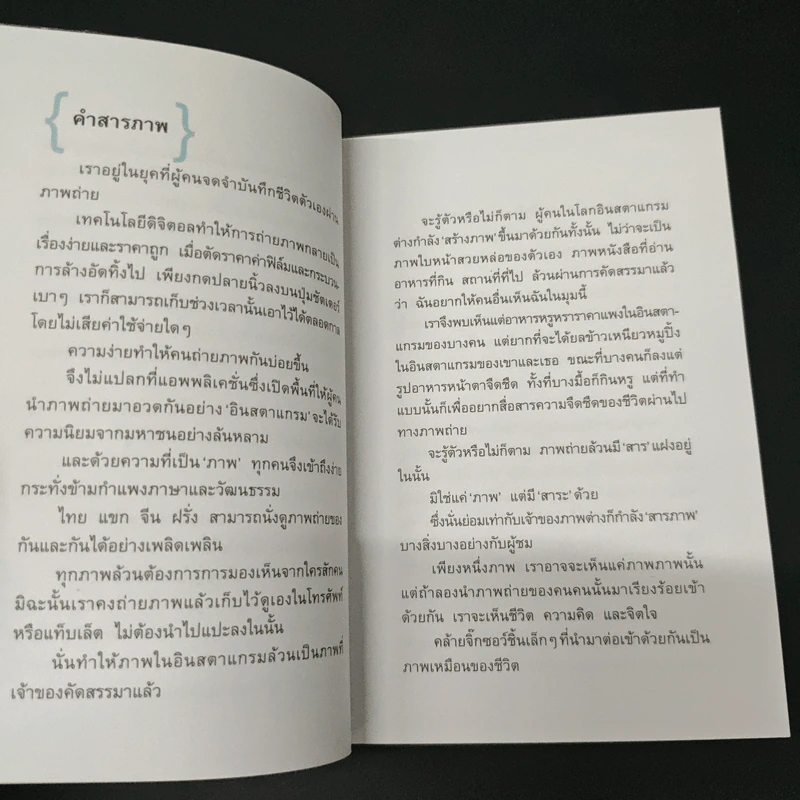 { คำสารภาพ }
เราอยู่ในยุคที่ผู้คนจดจำบันทึกชีวิตตัวเองผ่าน
ภาพถ่าย
เทคโนโลยีดิจิตอลทำให้การถ่ายภาพกลายเป็น
เรื่องง่ายและราคาถูก เมื่อตัดราคาค่าฟิล์มและกระบวน-
การล้างอัดทิ้งไป เพียงกดปลายนิ้วลงบนปุ่มชัตเตอร์
เบาๆ เราก็สามารถเก็บช่วงเวลานั้นเอาไว้ได้ตลอดกาล
โดยไม่เสียค่าใช้จ่ายใดๆ
ความง่ายทำให้คนถ่ายภาพกันบ่อยขึ้น
จึงไม่แปลกที่แอพพลิเคชั่นซึ่งเปิดพื้นที่ให้ผู้คน
นำภาพถ่ายมาอวดกันอย่าง ‘อินสตาแกรม’ จะได้รับ
ความนิยมจากมหาชนอย่างล้นหลาม
และด้วยความที่เป็น ‘ภาพ’ ทุกคนจึงเข้าถึงง่าย
กระทั่งข้ามกำแพงภาษาและวัฒนธรรม
ไทย แขก จีน ฝรั่ง สามารถนั่งดูภาพถ่ายของ
กันและกันได้อย่างเพลิดเพลิน
ทุกภาพล้วนต้องการการมองเห็นจากใครสักคน
มิฉะนั้นเราคงถ่ายภาพแล้วเก็บไว้ดูเองในโทรศัพท์
หรือแท็บเล็ต ไม่ต้องนำไปแปะลงในนั้น
นั่นทำให้ภาพในอินสตาแกรมล้วนเป็นภาพที่
เจ้าของคัดสรรมาแล้ว
จะรู้ตัวหรือไม่ก็ตาม ผู้คนในโลกอินสตาแกรม
ต่างกำลัง ‘สร้างภาพ’ ขึ้นมาด้วยกันทั้งนั้น ไม่ว่าจะเป็น
ภาพใบหน้าสวยหล่อของตัวเอง ภาพหนังสือที่อ่าน
อาหารที่กิน สถานที่ที่ไป ล้วนผ่านการคัดสรรมาแล้ว
ว่า ฉันอยากให้คนอื่นเห็นฉันในมุมนี้
เราจึงพบเห็นแต่อาหารหรูหราราคาแพงในอินสตา-
แกรมของบางคน แต่ยากที่จะได้ยลข้าวเหนียวหมูปิ้ง
ในอินสตาแกรมของเขาและเธอ ขณะที่บางคนก็ลงแต่
รูปอาหารหน้าตาจืดชืด ทั้งที่บางมื้อก็กินหรู แต่ที่ทำ
แบบนั้นก็เพื่ออยากสื่อสารความจืดชืดของชีวิตผ่านไป
ทางภาพถ่าย
จะรู้ตัวหรือไม่ก็ตาม ภาพถ่ายล้วนมี ‘สาร’ แฝงอยู่
ในนั้น
มิใช่แค่ ‘ภาพ’ แต่มี ‘สาระ’ ด้วย
ซึ่งนั่นย่อมเท่ากับเจ้าของภาพต่างก็กำลัง ‘สารภาพ’
บางสิ่งบางอย่างกับผู้ชม
เพียงหนึ่งภาพ เราอาจจะเห็นแค่ภาพภาพนั้น
แต่ถ้าลองนำภาพถ่ายของคนคนนั้นมาเรียงร้อยเข้า
ด้วยกัน เราจะเห็นชีวิต ความคิด และจิตใจ
คล้ายจิ๊กซอว์ชิ้นเล็กๆ ที่นำมาต่อเข้าด้วยกันเป็น
ภาพเหมือนของชีวิต